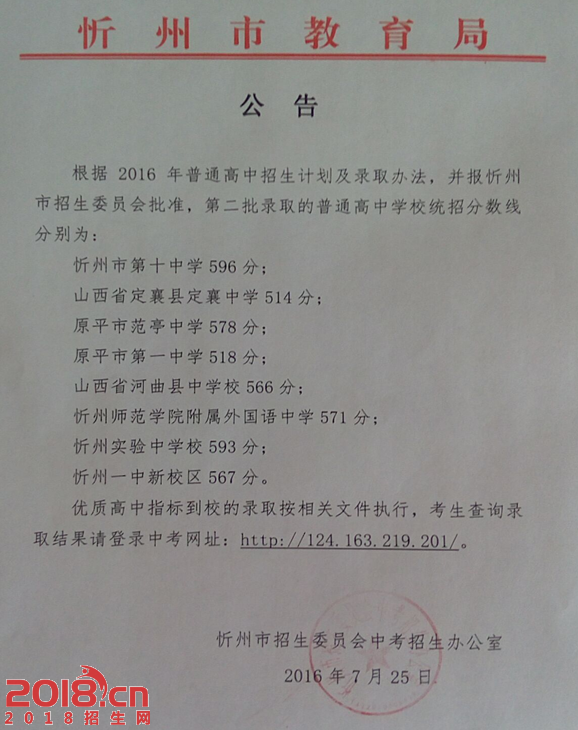 忻州市教育局
公告
根据 2016 年普通高中招生计划及录取办法，并报忻州
市招生委员会批准，第二批录取的普通高中学校统招分数线
分别为：
忻州市第十中学 596 分；
山西省定襄县定襄中学 514 分；
原平市范亭中学 578 分；
原平市第一中学 518 分；
山西省河曲县中学校 566 分；
忻州师范学院附属外国语中学 571 分；
忻州实验中学校 593 分；
忻州一中新校区 567 分。
优质高中指标到校的录取按相关文件执行，考生查询录
取结果请登录中考网址：http://124.163.219.201/。
忻州市招生委员会中考招生办公室
2016 年 7 月 25 日
2018.cn
2018招生网